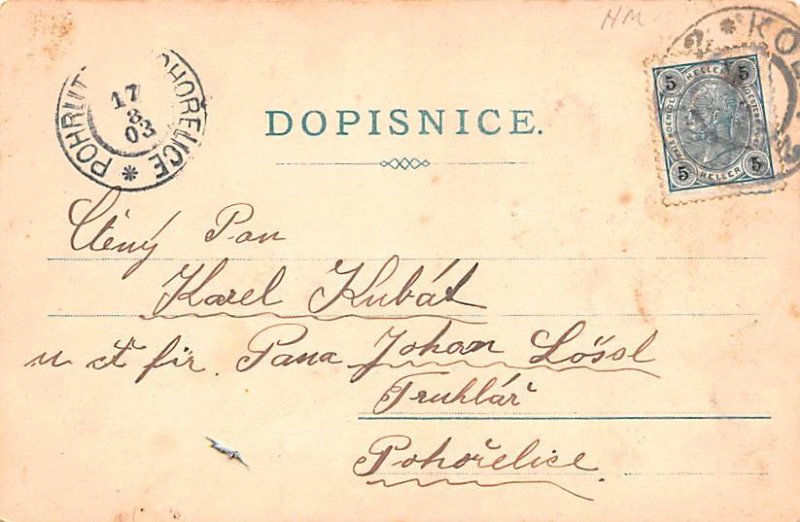 HM
* KO
POHRLITZ POHOŘELICE *
17
8
03
5 HELLER 5
5 HELLER 5
DOPISNICE.
Ctěný Pan
Karel Kubát
u ct fir. Pana Johan Lössl
Truhlář
Pohořelice.